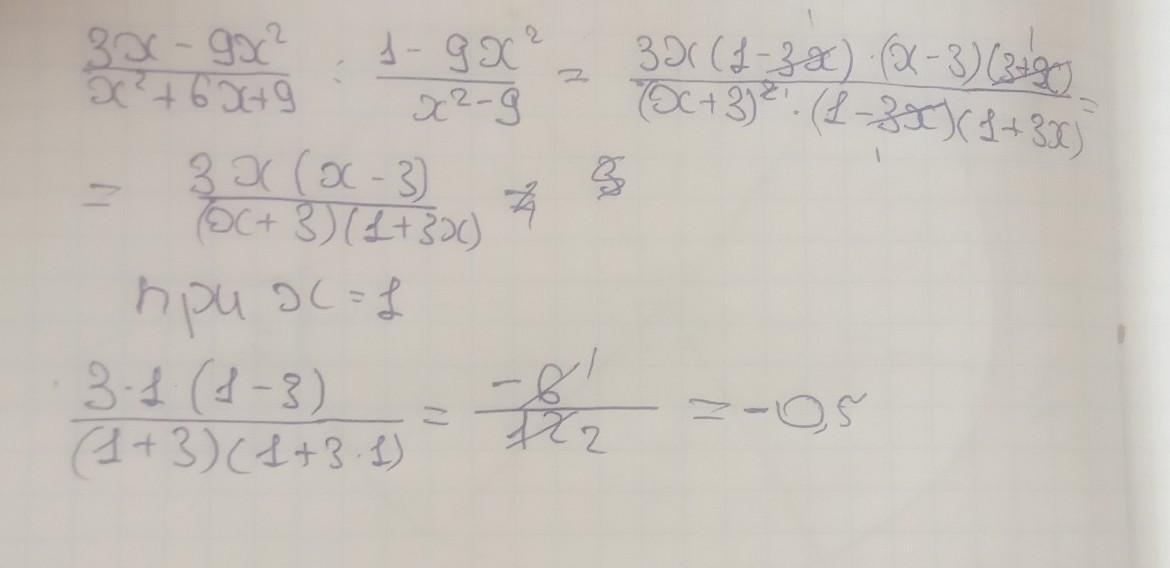 (3x - 9x²)/(x² + 6x + 9) : (1 - 9x²)/(x² - 9) = (3x(1 - 3x) · (x - 3)(3 + x))/((x + 3)² · (1 - 3x)(1 + 3x)) =
= (3x(x - 3))/((x + 3)(1 + 3x))
при x = 1
(3 · 1 · (1 - 3))/((1 + 3)(1 + 3 · 1)) = (-6 1)/(12 2) = -0,5